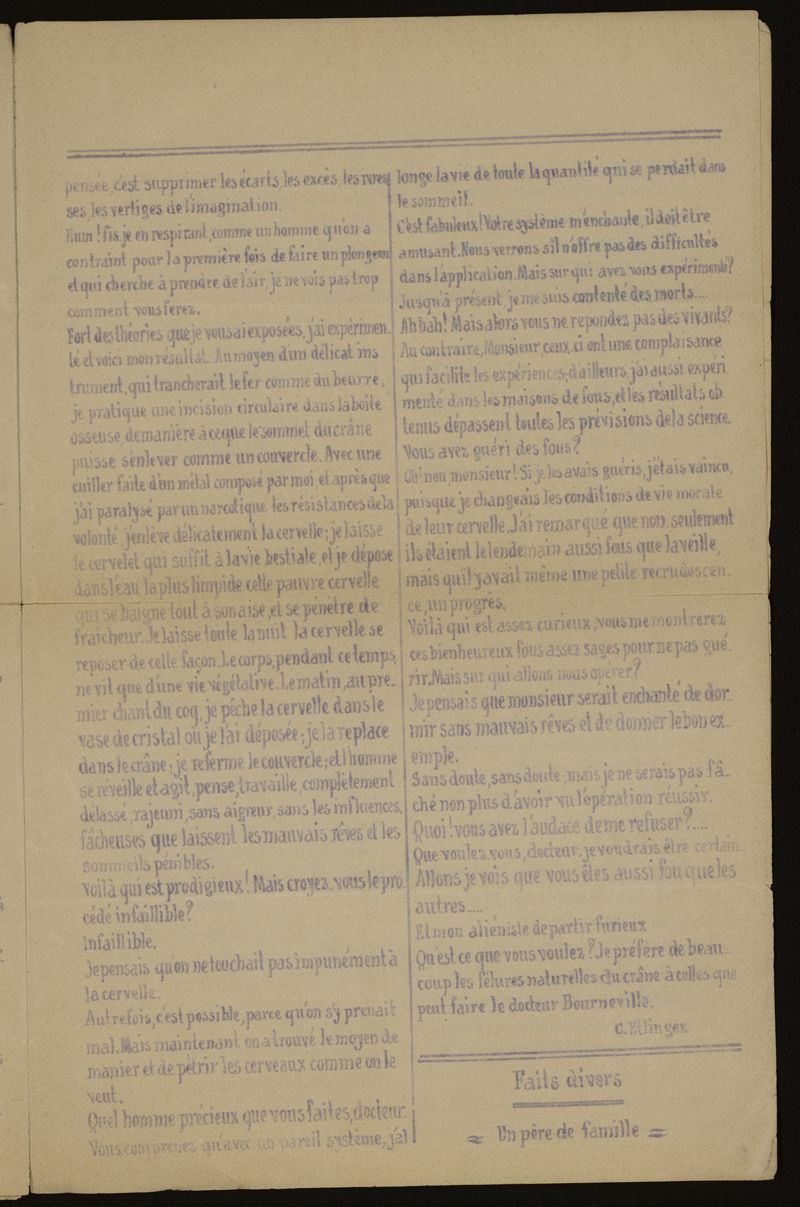 pensée, c'est supprimer les écarts, les excès, les rares
ses, les vertiges de l'imagination.
Hum! fis-je en respirant, comme un homme qu'on a
contraint pour la première fois de faire un plongeon
et qui cherche à prendre de l'air, je ne vois pas trop
comment vous ferez.
Fort des théories que je vous ai exposées, j'ai expérimen-
té et voici mon résultat. Au moyen d'un délicat ins
trument, qui trancherait le fer comme du beurre,
je pratique une incision circulaire dans la boîte
osseuse, de manière à ce que le sommet du crâne
puisse s'enlever comme un couvercle. Avec une
cuiller faite d'un métal composé par moi, et après que
j'ai paralysé par un narcotique les résistances de la
volonté, j'enlève délicatement la cervelle; je laisse
le cervelet qui suffit à la vie bestiale, et je dépose
dans l'eau la plus limpide cette pauvre cervelle
qui se baigne tout à son aise, et se pénètre de
fraîcheur. Je laisse toute la nuit la cervelle se
reposer de cette façon. Le corps, pendant ce temps,
ne vit que d'une vie végétative. Le matin, au pre-
mier chant du coq, je pêche la cervelle dans le
vase de cristal où je l'ai déposée; je la replace
dans le crâne; je referme le couvercle; et l'homme
se réveille et agit, pense, travaille, complètement
délassé, rajeuni, sans aigreur, sans les influences,
fâcheuses que laissent les mauvais rêves et les
sommeils pénibles.
Voilà qui est prodigieux! Mais croyez-vous le pro
cédé infaillible?
Infaillible.
Je pensais qu'on ne touchait pas impunément à
la cervelle.
Autrefois, c'est possible, parce qu'on s'y prenait
mal. Mais maintenant on a trouvé le moyen de
manier et de pétrir les cerveaux comme on le
veut.
Quel homme précieux que vous faites, docteur.
Vous comprenez qu'avec un pareil système, j'al
longe la vie de toute la quantité qui se perdait dans
le sommeil.
C'est fabuleux! Votre système m'enchante, il doit être
amusant. Nous verrons s'il n'offre pas des difficultés
dans l'application. Mais sur qui avez-vous expérimenté?
Jusqu'à présent je me suis contenté des morts....
Ah bah! Mais alors vous ne repondez pas des vivants?
Au contraire, Monsieur, ceux-ci ont une complaisance
qui facilite les expériences; d'ailleurs, j'ai aussi expéri-
menté dans les maisons de fous, et les résultats ob
tenus dépassent toutes les prévisions de la science.
Vous avez guéri des fous?
Oh! non, monsieur! Si je les avais guéris, j'étais vaincu,
puisque je changeais les conditions de vie morale
de leur cervelle. J'ai remarqué que non-seulement
ils étaient le lendemain aussi fous que la veille,
mais qu'il y avait même une petite recrudescen-
ce, un progrès.
Voilà qui est assez curieux, vous me montrerez
ces bienheureux fous assez sages pour ne pas gué-
rir. Mais sur qui allons-nous opérer?
Je pensais que monsieur serait enchanté de dor
mir sans mauvais rêves et de donner le bon ex-
emple.
Sans doute, sans doute; mais je ne serais pas fâ-
ché non plus d'avoir vu l'opération réussir.
Quoi! vous avez l'audace de me refuser?....
Que voulez-vous, docteur, je voudrais être certain.
Allons je vois que vous êtes aussi fou que les
autres....
Et mon aliéniste de partir furieux
Qu'est ce que vous voulez? Je préfère de beau-
coup les fêlures naturelles du crâne à celles que
peut faire le docteur Bourneville.
C. Etlinger.
Faits divers
= Un père de famille =